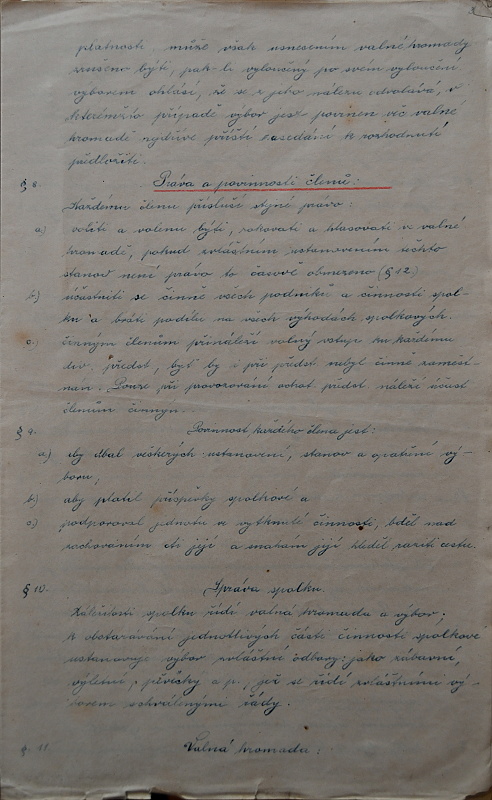 platnosti, může však usnesením valné hromady
zrušeno býti, pak-li vyloučený po svém vyloučení
výborem ohlásí, že se z jeho nálezu odvolává, v
kterémžto případě výbor jest povinen věc valné
hromadě nejdříve příští zasedání k rozhodnutí
předložiti.
§ 8. Práva a povinnosti členů:
Každému členu přísluší stejné právo:
a) voliti a volenu býti, rokovati a hlasovati v valné
hromadě, pokud zvláštním ustanovením těchto
stanov není právo to časově obmezeno (§ 12)
b) účastniti se činně všech podniků a činnosti spol-
ku a bráti podílu na všech výhodách spolkových.
c) činným členům přináleží volný vstup ku každému
div. předst, byť by i při předst. nebyl činně zaměst-
nán. Pouze při provozování ochot. předst. náleží účast
členům činným.
§ 9. Povinnost každého člena jest:
a) aby dbal veškerých ustanovení, stanov a opatření vý-
boru,
b) aby platil příspěvky spolkové a
c) podporoval jednotu ve vytknuté činnosti, bděl nad
zachováním cti její a snahám její hleděl raziti cestu.
§ 10. Správa spolku.
Záležitosti spolku řídí valná hromada a výbor;
k obstarávání jednotlivých částí činnosti spolkové
ustanovuje výbor zvláštní odbory: jako zábavní,
výletní, pěvecký a p., jež se řídí zvláštními vý-
borem schválenými řády.
§. 11. Valná hromada: